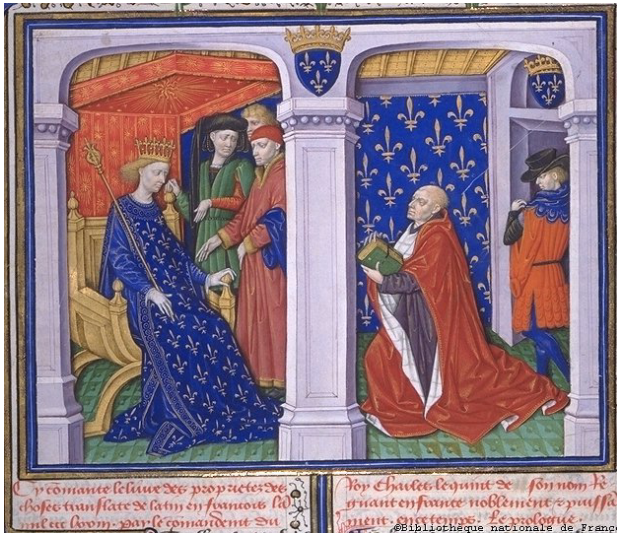 Cy comance le livre des proprietez des
choses translate de latin en francois l
mil ccc lxxii par le comandement du
Roy Charles le quint de son nom Re
gnant en france noblement & puissa
ment en ce temps. Le prologue
©Bibliothèque nationale de Franc